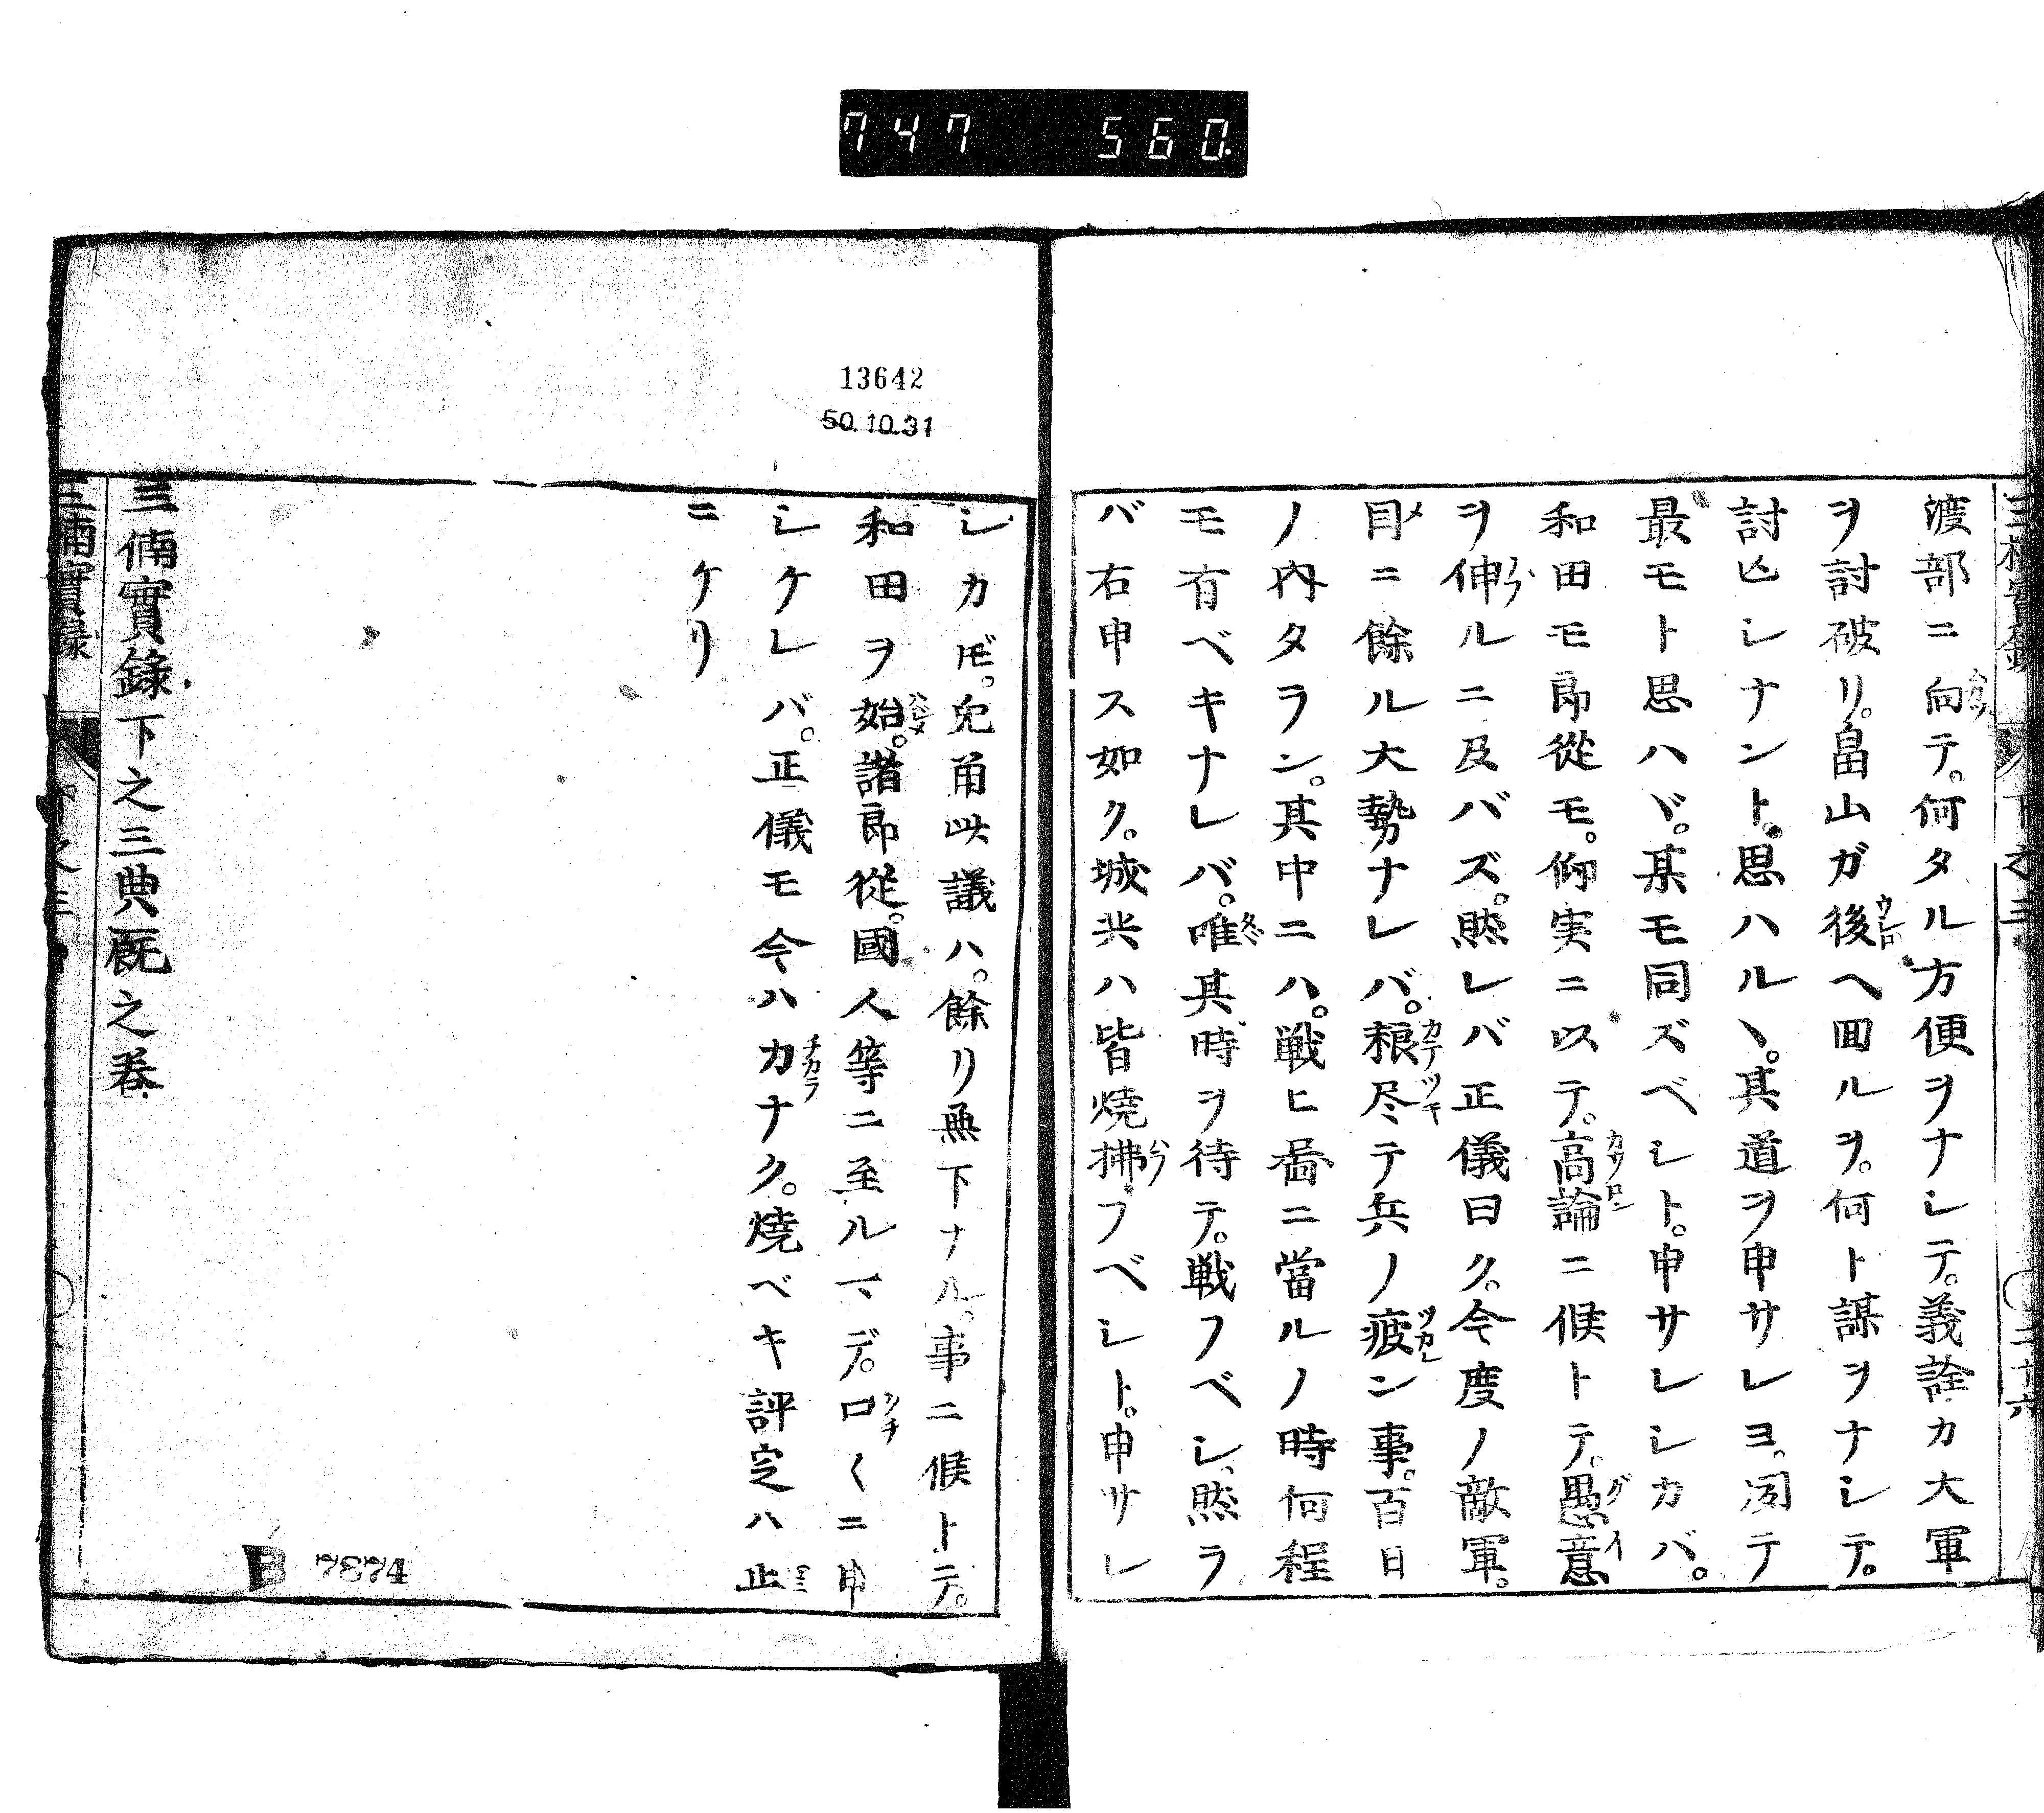 747 560.
渡部ニ向テ。何タル方便ヲナシテ。義詮カ大軍
ヲ討破リ。畠山ガ後ヘ回ルヲ。何ト謀ヲナシテ。
討亡シナント。思ハルヽ。其道ヲ申サレヨ。聞テ
最モト思ハヾ。某モ同ズベシト。申サレシカバ。
和田モ郎從モ。仰実ニ以テ。高論ニ候トテ。愚意
ヲ伸ルニ及バズ。然レバ正儀曰ク。今度ノ敵軍。
目ニ餘ル大勢ナレバ。粮尽テ兵ノ疲ン事。百日
ノ内タラン。其中ニハ。戦ヒ啚ニ當ルノ時何程
モ有ベキナレバ。唯其時ヲ待テ。戦フベシ、然ラ
バ右申ス如ク。城共ハ皆焼拂フベシト。申サレ
13642
50.10.31
シカ𪜈。兔角此議ハ。餘リ無下ナル。事ニ候トテ。
和田ヲ始。諸郎從。國人等ニ至ルマデ。口〱ニ申
シケレバ。正儀モ今ハ力ナク。焼ベキ評定ハ止
ニケリ
三楠實錄下之三典厩之巻
三楠實錄
下之三
B 7874